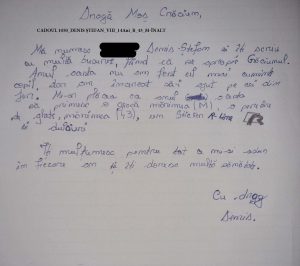 Dragă Moș Crăciun,
CADOUL 1050_DENIS ȘTEFAN_VIII_14Ani_B_43_M-ÎNALT
Mă numesc Denis-Ștefan și îți scriu
cu multă bucurie, fiind că se apropie Crăciunul.
Anul acesta nu am fost cel mai cuminte
copil, dar am încercat să ajut pe cei din
jur. Mi-ar plăcea ca anul acesta
să primesc o geacă mărimea (M), o pereche
de ghete, mărimea (43), un Stilou
și dulciuri
Îți mulțumesc pentru tot a mi-ai adus
în fiecare an și îți doresc multă sănătate.
Cu drag
Denis.